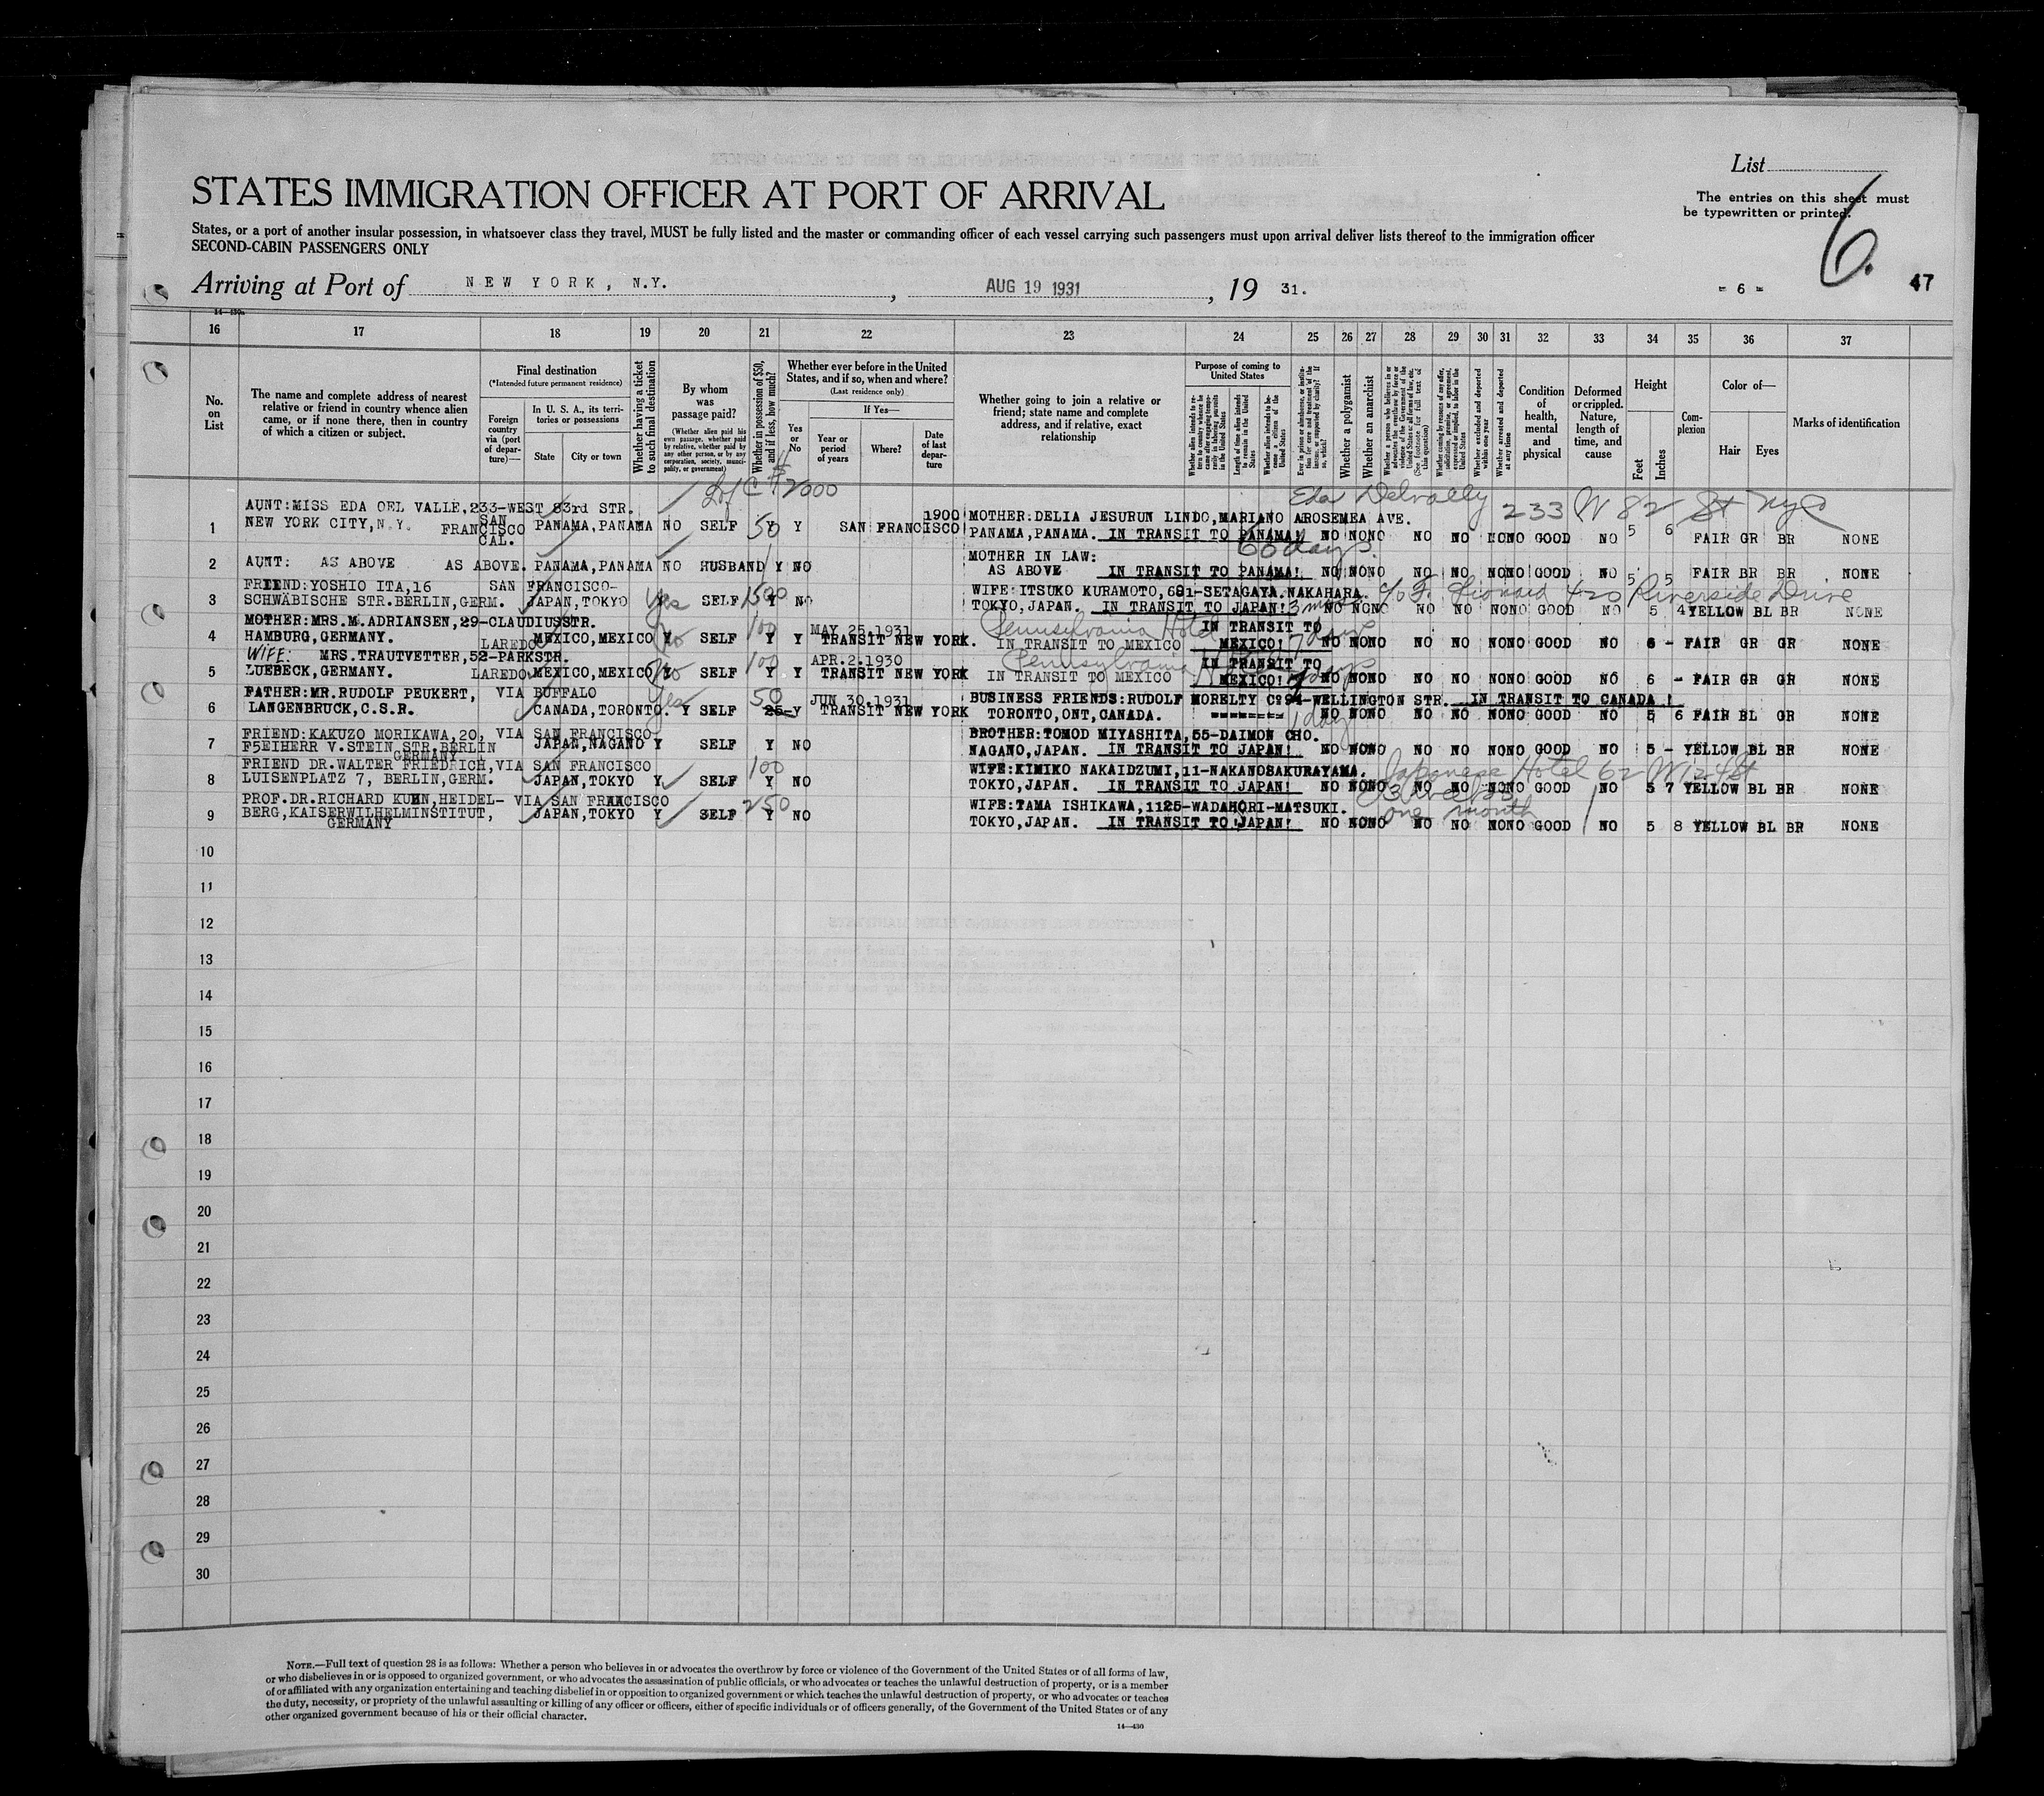 List
STATES IMMIGRATION OFFICER AT PORT OF ARRIVAL
The entries on this sheet must
be typewritten or printed.
States, or a port of another insular possession, in whatsoever class they travel, MUST be fully listed and the master or commanding officer of each vessel carrying such passengers must upon arrival deliver lists thereof to the immigration officer
SECOND-CABIN PASSENGERS ONLY
6.
Arriving at Port of NEW YORK, N.Y. , AUG 19 1931 , 19 31. - 6 - 47
16 17 18 19 20 21 22 23 24 25 26 27 28 29 30 31 32 33 34 35 36 37
No. on List
The name and complete address of nearest relative or friend in country whence alien came, or if none there, then in country of which a citizen or subject.
Final destination
(*Intended future permanent residence)
Foreign country via (port of departure)—
In U. S. A., its territories or possessions
State City or town
Whether having a ticket to such final destination
By whom was passage paid?
(Whether alien paid his own passage, whether paid by relative, whether paid by any other person, or by any corporation, society, municipality, or government)
Whether in possession of $50, and if less, how much?
Whether ever before in the United States, and if so, when and where?
(Last residence only)
Yes or No
If Yes—
Year or period of years
Where?
Date of last departure
Whether going to join a relative or friend; state name and complete address, and if relative, exact relationship
Purpose of coming to United States
Whether a polygamist
Whether an anarchist
Whether excluded and deported within one year
Whether arrested and deported at any time
Condition of health, mental and physical
Deformed or crippled. Nature, length of time, and cause
Height
Feet Inches
Complexion
Color of—
Hair Eyes
Marks of identification
$2000
Eda Delvally 233 W 82 St NYC
AUNT:MISS EDA DEL VALLE,233-WEST 83rd STR. 1900 MOTHER:DELIA JESURUN LINDO,MARIANO AROSEMEA AVE.
1 NEW YORK CITY,N.Y. SAN FRANCISCO CAL. PANAMA,PANAMA NO SELF 50 Y Y SAN FRANCISCO PANAMA,PANAMA. IN TRANSIT TO PANAMA! NO NONO NO NO NONO GOOD NO 5 6 FAIR GR BR NONE
60 days.
MOTHER IN LAW:
2 AUNT: AS ABOVE AS ABOVE. PANAMA,PANAMA NO HUSBAND Y NO AS ABOVE IN TRANSIT TO PANAMA! NO NONO NO NO NONO GOOD NO 5 5 FAIR BR BR NONE
FRIEND:YOSHIO ITA,16 SAN FRANCISCO- WIFE:ITSUKO KURAMOTO,681-SETAGAYA.NAKAHARA. 420 Riverside Drive
3 SCHWÄBISCHE STR.BERLIN,GERM. JAPAN,TOKYO Yes SELF 1500 Y NO TOKYO,JAPAN. IN TRANSIT TO JAPAN! NO NONO NO NO NONO GOOD NO 5 4 YELLOW BL BR NONE
MOTHER:MRS.M.ADRIANSEN,29-CLAUDIUSSTR. MAY 25.1931 Pennsylvania Hotel IN TRANSIT TO
4 HAMBURG,GERMANY. LAREDO MEXICO,MEXICO Y No SELF 100 Y Y TRANSIT NEW YORK. IN TRANSIT TO MEXICO MEXICO! 7 days NO NONO NO NO NONO GOOD NO 6 - FAIR GR GR NONE
WIFE: MRS.TRAUTVETTER,52-PARKSTR. APR.2.1930 Pennsylvania Hotel IN TRANSIT TO
5 LUEBECK,GERMANY. LAREDO MEXICO,MEXICO Y No SELF 100 Y Y TRANSIT NEW YORK IN TRANSIT TO MEXICO MEXICO! 7 days NO NONO NO NO NONO GOOD NO 6 - FAIR GR GR NONE
FATHER:MR.RUDOLF PEUKERT, VIA BUFFALO Yes 50 JUN 30.1931 BUSINESS FRIENDS:RUDOLF MORELTY Co 94-WELLINGTON STR. IN TRANSIT TO CANADA !
6 LANGENBRUCK,C.S.R. CANADA,TORONTO. Y SELF 25-Y TRANSIT NEW YORK TORONTO,ONT,CANADA. 1 day NO NONO NO NO NONO GOOD NO 5 6 FAIR BL GR NONE
FRIEND:KAKUZO MORIKAWA,20, VIA SAN FRANCISCO BROTHER:TOMOD MIYASHITA,55-DAIMON CHO.
7 F5EIHERR V.STEIN STR,BERLIN GERMANY JAPAN,NAGANO Y SELF Y NO NAGANO,JAPAN. IN TRANSIT TO JAPAN! NO NONO NO NO NONO GOOD NO 5 - YELLOW BL BR NONE
FRIEND DR.WALTER FRIEDRICH,VIA SAN FRANCISCO 100 WIFE:KIMIKO NAKAIDZUMI,11-NAKANOSAKURAYAMA. Japanese Hotel 62 W 124 St
8 LUISENPLATZ 7, BERLIN,GERM. JAPAN,TOKYO Y SELF Y NO TOKYO,JAPAN. IN TRANSIT TO JAPAN! NO NONO NO NO NONO GOOD NO 5 7 YELLOW BL BR NONE
3 weeks
PROF.DR.RICHARD KUHN,HEIDEL- VIA SAN FRANCISCO 250 WIFE:TAMA ISHIKAWA,1125-WADAHORI-MATSUKI. one month
9 BERG,KAISERWILHELMINSTITUT, GERMANY JAPAN,TOKYO Y SELF Y NO TOKYO,JAPAN. IN TRANSIT TO JAPAN! NO NONO NO NO NONO GOOD NO 5 8 YELLOW BL BR NONE
10
11
12
13
14
15
16
17
18
19
20
21
22
23
24
25
26
27
28
29
30
NOTE.—Full text of question 28 is as follows: Whether a person who believes in or advocates the overthrow by force or violence of the Government of the United States or of all forms of law,
or who disbelieves in or is opposed to organized government, or who advocates the assassination of public officials, or who advocates or teaches the unlawful destruction of property, or is a member
of or affiliated with any organization entertaining and teaching disbelief in or opposition to organized government or which teaches the unlawful destruction of property, or who advocates or teaches
the duty, necessity, or propriety of the unlawful assaulting or killing of any officer or officers, either of specific individuals or of officers generally, of the Government of the United States or of any
other organized government because of his or their official character.
14—430